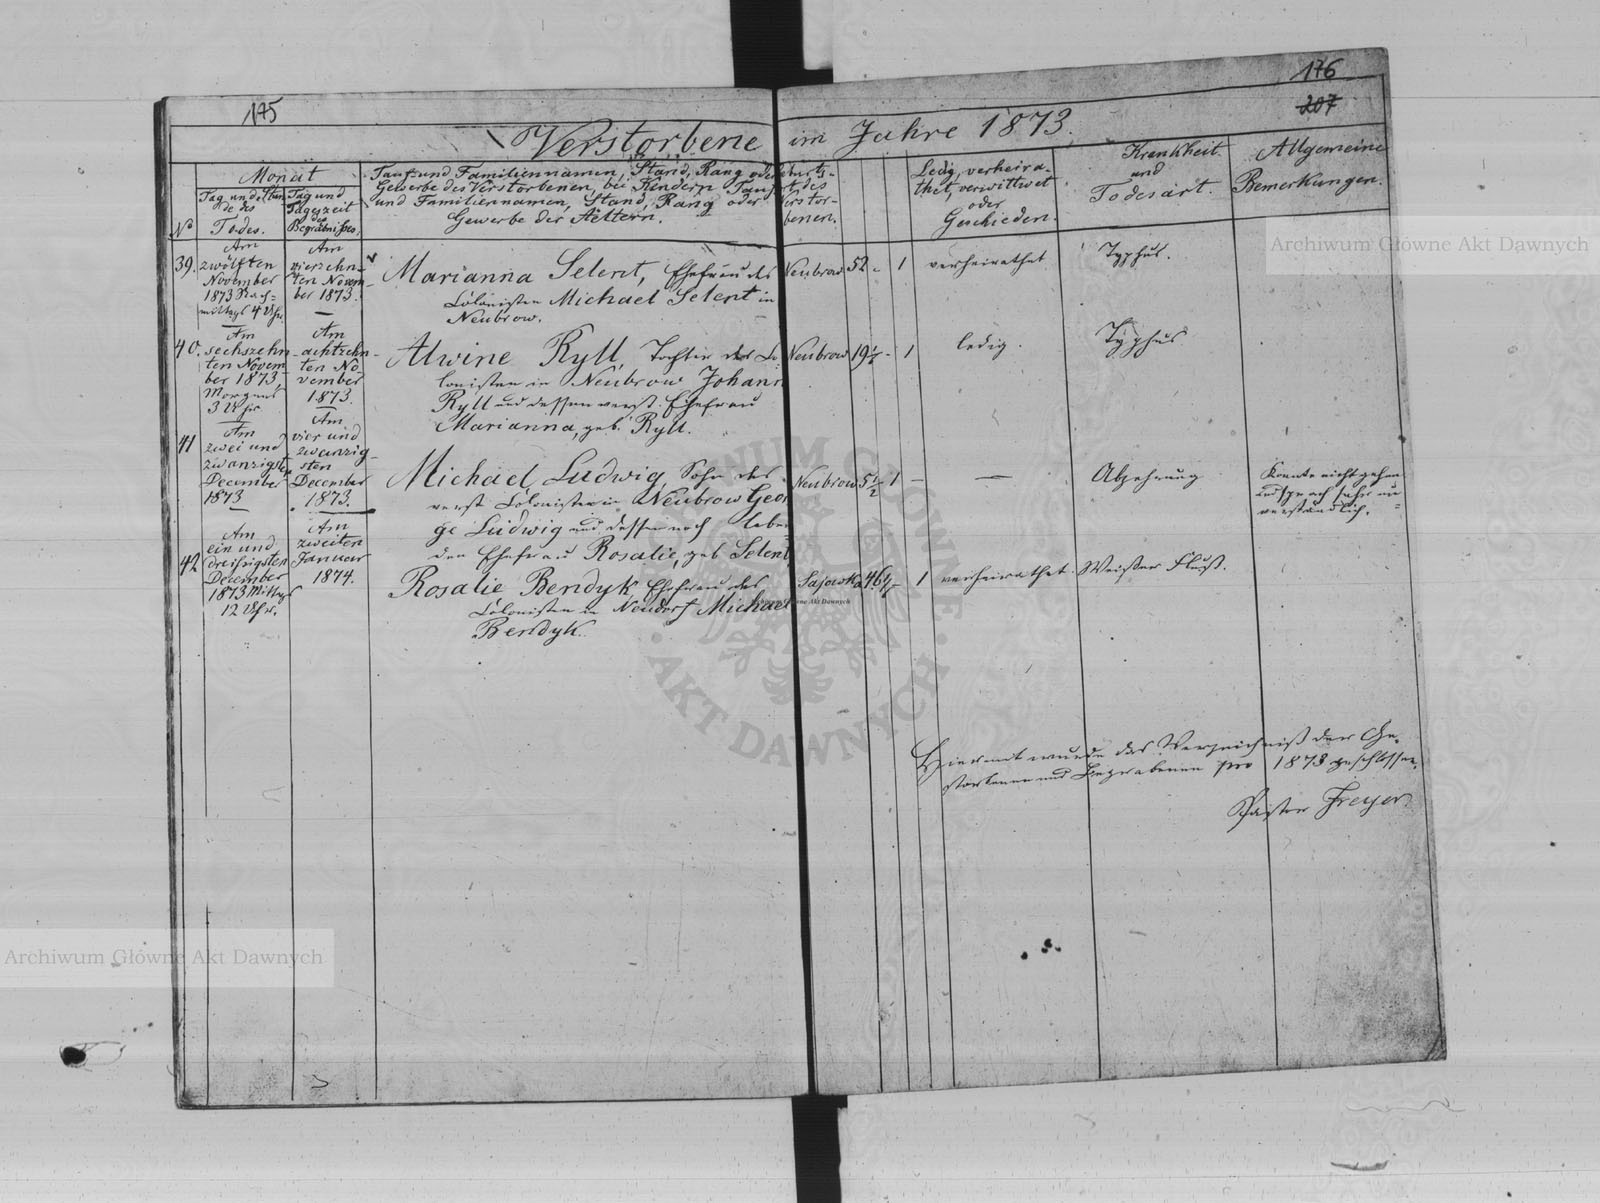 175
176
207
Verstorbene im Jahre 1873.
Monat
No
Tag und Stun-
de des
Todes.
Tag und
Tageszeit
des
Begräbnißes.
Tauf und Familiennamen, Stand, Rang oder
Gewerbe des Verstorbenen, bei Kindern Tauf
und Familiennamen, Stand, Rang oder
Gewerbe der Aeltern.
Geburts-
ort des
Verstor-
benen.
Ledig, verheira-
thet, verwittwet
oder
Geschieden.
Krankheit
und
Todesart.
Allgemeine
Bemerkungen.
39.
Am
zwölften
November
1873 Nach-
mittags 4 Uhr
Am
vierzehn-
ten Novem-
ber 1873.
Marianna Selent, Ehefrau des
Colonisten Michael Selent in
Neubrow.
Neubrow 52 - 1 verheirathet Typhus.
40.
Am
sechszehn-
ten Novem
ber 1873,
Morgens
3 Uhr
Am
achtzehn-
ten No
vember
1873.
Alwine Ryll, Tochter des Co
lonisten in Neubrow Johann
Ryll und dessen verst. Ehefrau
Marianna, geb. Ryll.
Neubrow 19 ½ - 1 ledig. Typhus
41
Am
zwei und
zwanzigsten
December
1873
Am
vier und
zwanzig-
sten
December
1873.
Michael Ludwig, Sohn des
verst Colonisten in Neubrow Geor
ge Ludwig und dessen noch leben
den Ehefrau Rosalie, geb Selent
Neubrow 5 ½ 1 - — Abzehrung
Konnte nicht gehen
und sprach sehr un
verständlich.
42
Am
ein und
dreißigsten
December
1873 Mittags
12 Uhr.
Am
zweiten
Januar
1874.
Rosalie Bendyk Ehefrau des
Colonisten in Neudorf Michael
Bendyk.
Sajowka 46 - 1 verheirathet. Weißer Fluß.
Hiermit wurde das Verzeichniß der Ge-
storbenen und Begrabenen pro 1873 geschlossen.
Pastor Freyer
Archiwum Główne Akt Dawnych
Archiwum Główne Akt Dawnych
ARCHIWUM GŁÓWNE
· AKT DAWNYCH ·